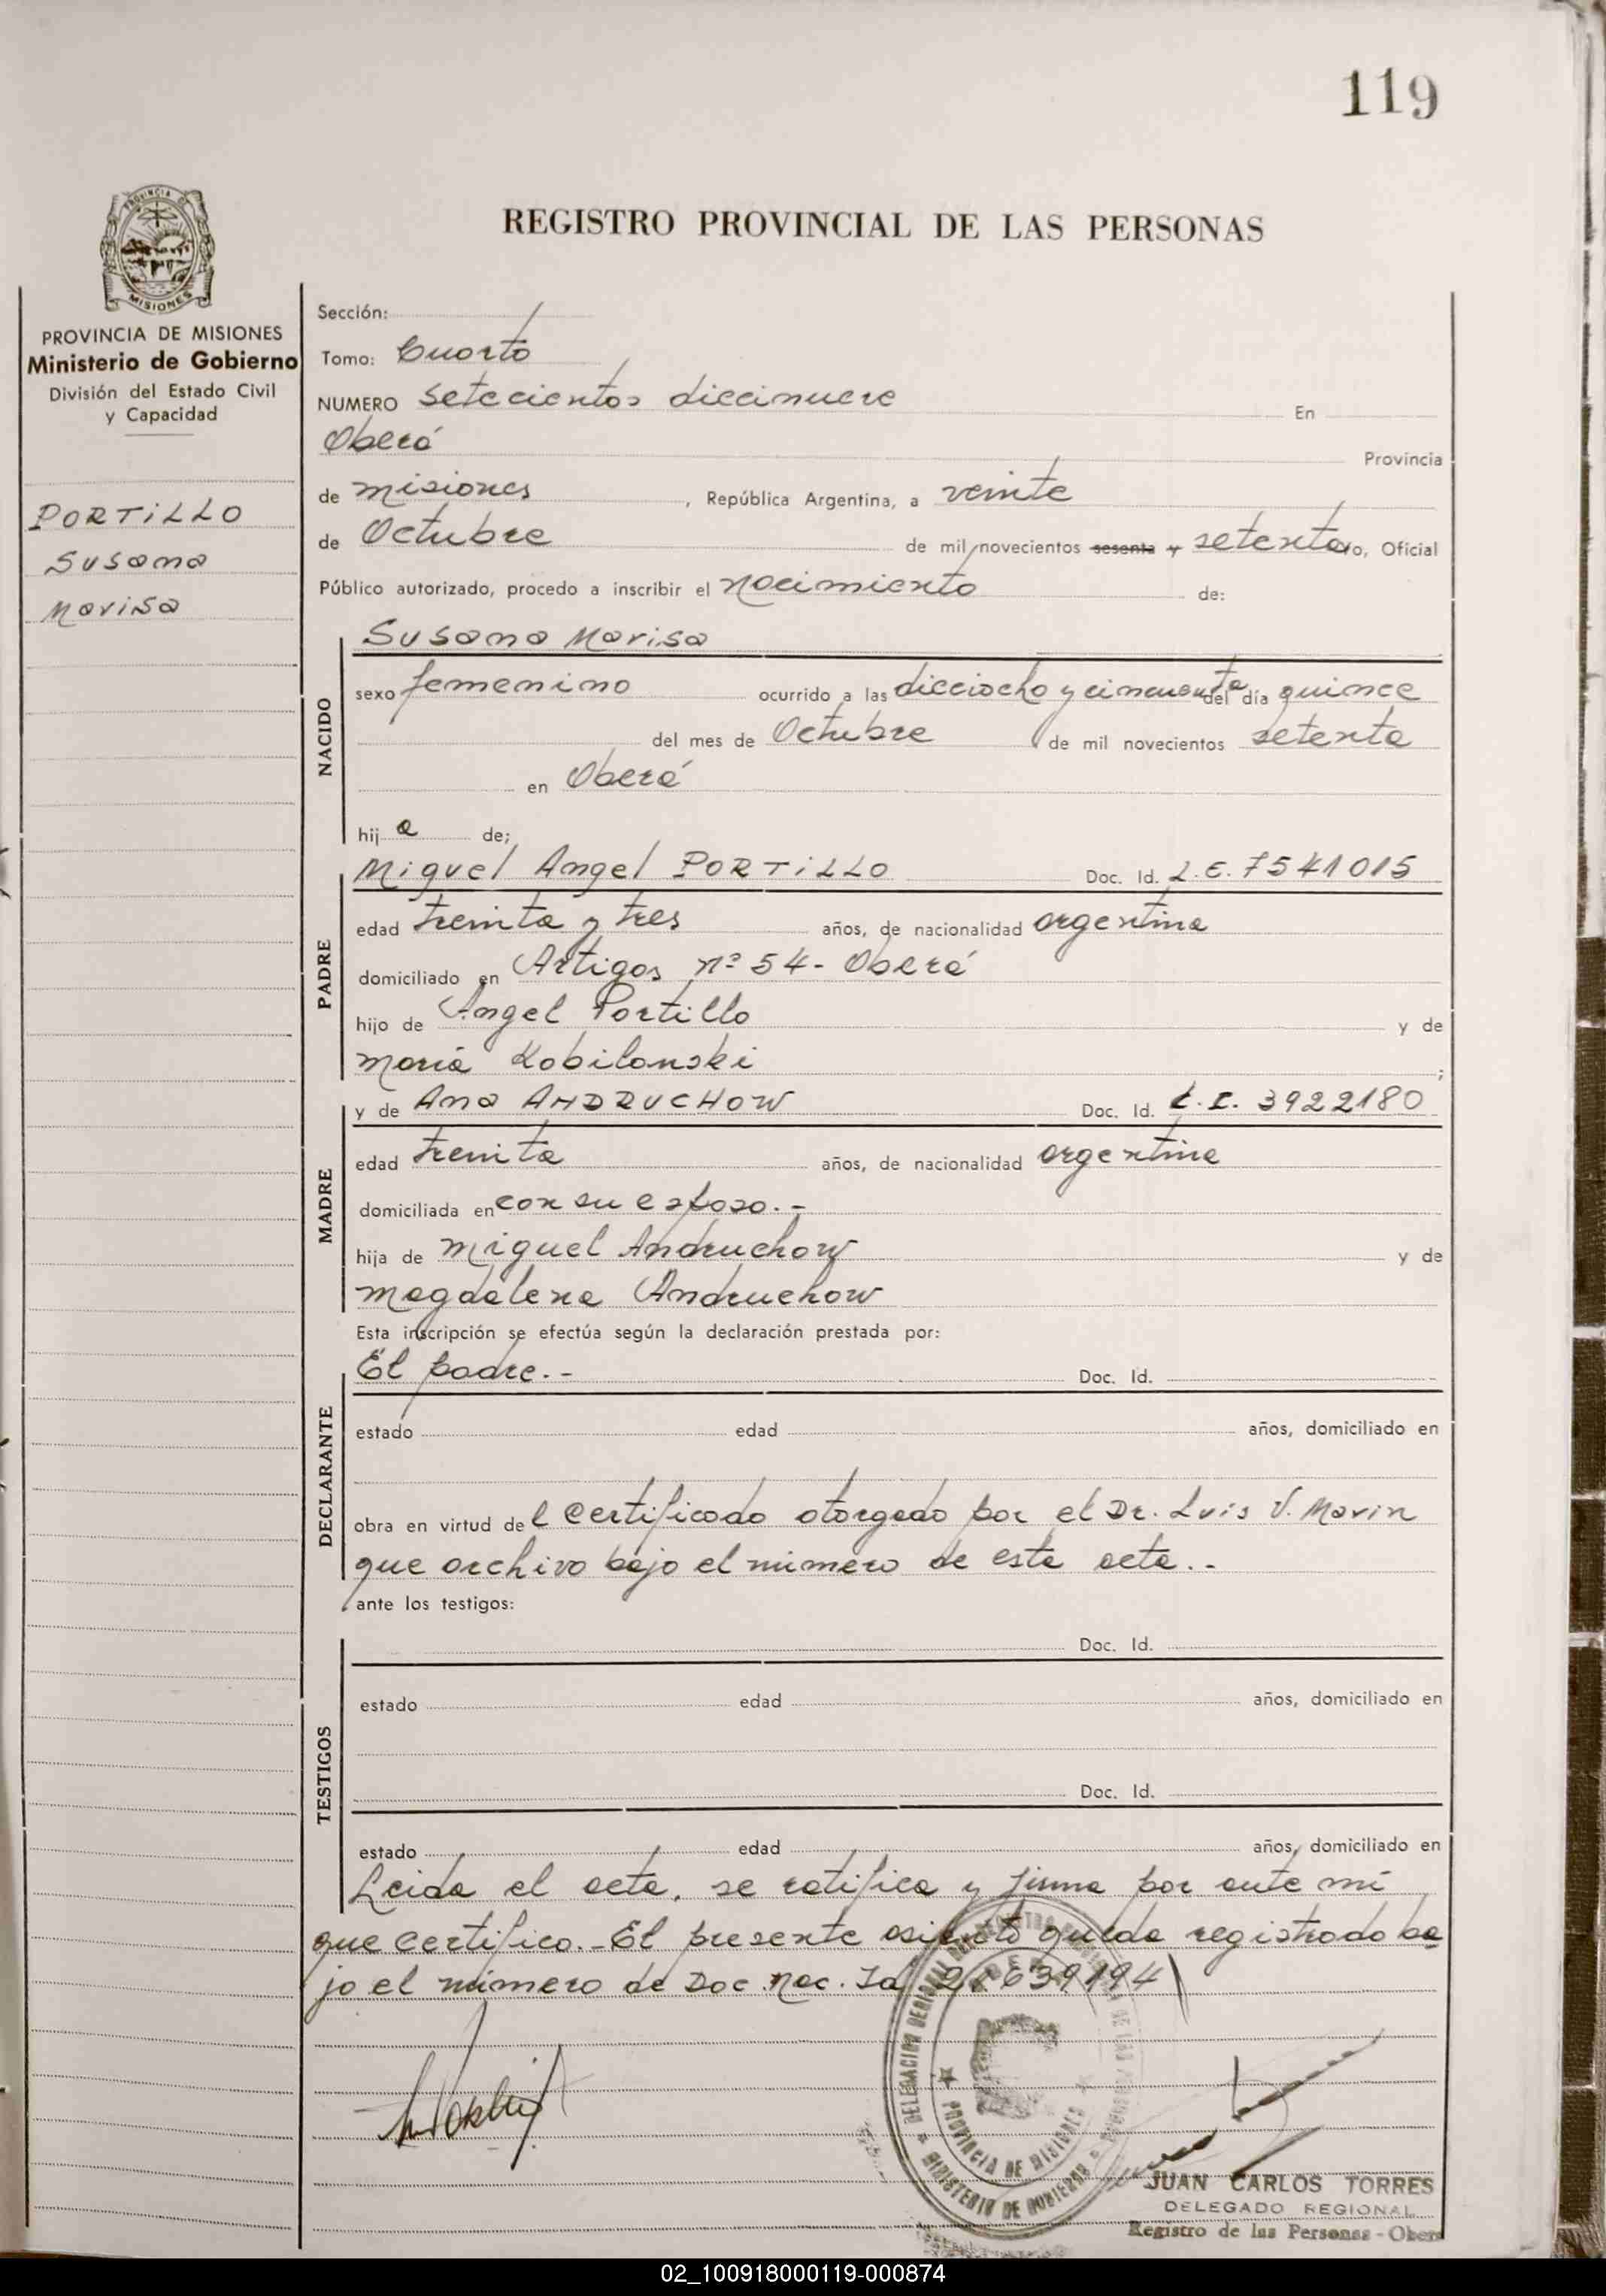 119
PROVINCIA DE
MISIONES
REGISTRO PROVINCIAL DE LAS PERSONAS
PROVINCIA DE MISIONES
Ministerio de Gobierno
División del Estado Civil
y Capacidad
PORTILLO
Susana
Marisa
Sección:
Tomo: Cuarto
NUMERO setecientos diecinueve En
Oberá Provincia
de misiones, República Argentina, a veinte
de Octubre de mil novecientos sesenta y setenta yo, Oficial
Público autorizado, procedo a inscribir el nacimiento de:
NACIDO
Susana Marisa
sexo femenino ocurrido a las dieciocho y cincuenta del día quince
del mes de Octubre de mil novecientos setenta
en Oberá
hij a de;
PADRE
Miguel Angel PORTILLO Doc. Id. L.E. 7541015
edad treinta y tres años, de nacionalidad argentina
domiciliado en Artigas nº 54 - Oberá
hijo de Angel Portillo y de
María Kobilanski ;
MADRE
y de Ana ANDRUCHOW Doc. Id. L.C. 3922180
edad treinta años, de nacionalidad argentina
domiciliada en con su esposo.-
hija de Miguel Andruchow y de
Magdalena Andruchow
Esta inscripción se efectúa según la declaración prestada por:
DECLARANTE
El padre.- Doc. Id.
estado edad años, domiciliado en
obra en virtud del Certificado otorgado por el Dr. Luis V. Marin
que archivo bajo el número de esta acta.-
ante los testigos:
TESTIGOS
Doc. Id.
estado edad años, domiciliado en
Doc. Id.
estado edad años, domiciliado en
Leida el acta, se ratifica y firma por ante mi
que certifico.- El presente asiento queda registrado ba
jo el número de Doc. Nac. Id. 639194
PROVINCIA DE MISIONES
MINISTERIO DE GOBIERNO
JUAN CARLOS TORRES
DELEGADO REGIONAL
Registro de las Personas - Obera
02_100918000119-000874